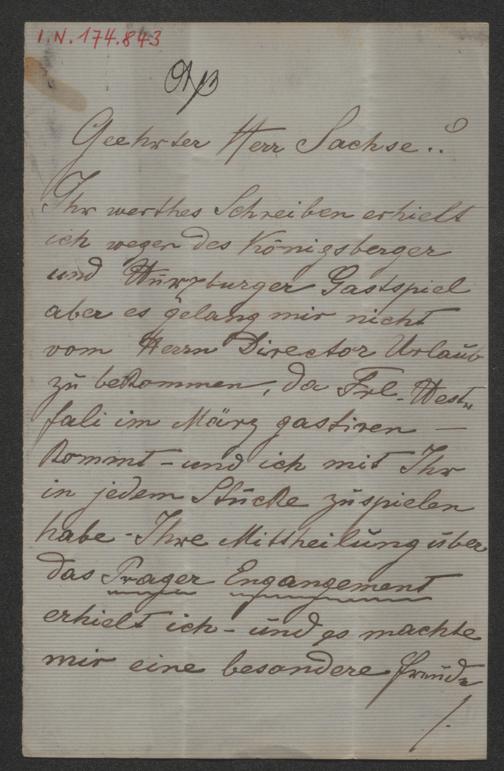 I.N. 174.843
Geehrter Herr Sachse..
Ihr werthes Schreiben erhielt
ich wegen des Königsberger
und Würzburger Gastspiel
aber es gelang mir nicht
vom Herrn Director Urlaub
zu bekommen, da Frl. West-
fali im März gastiren –
kommt – und ich mit Ihr
in jedem Stücke zuspielen
habe - Ihre Mittheilung über
das Prager Engangement
erhielt ich – und es machte
mir eine besondere Freude
/.